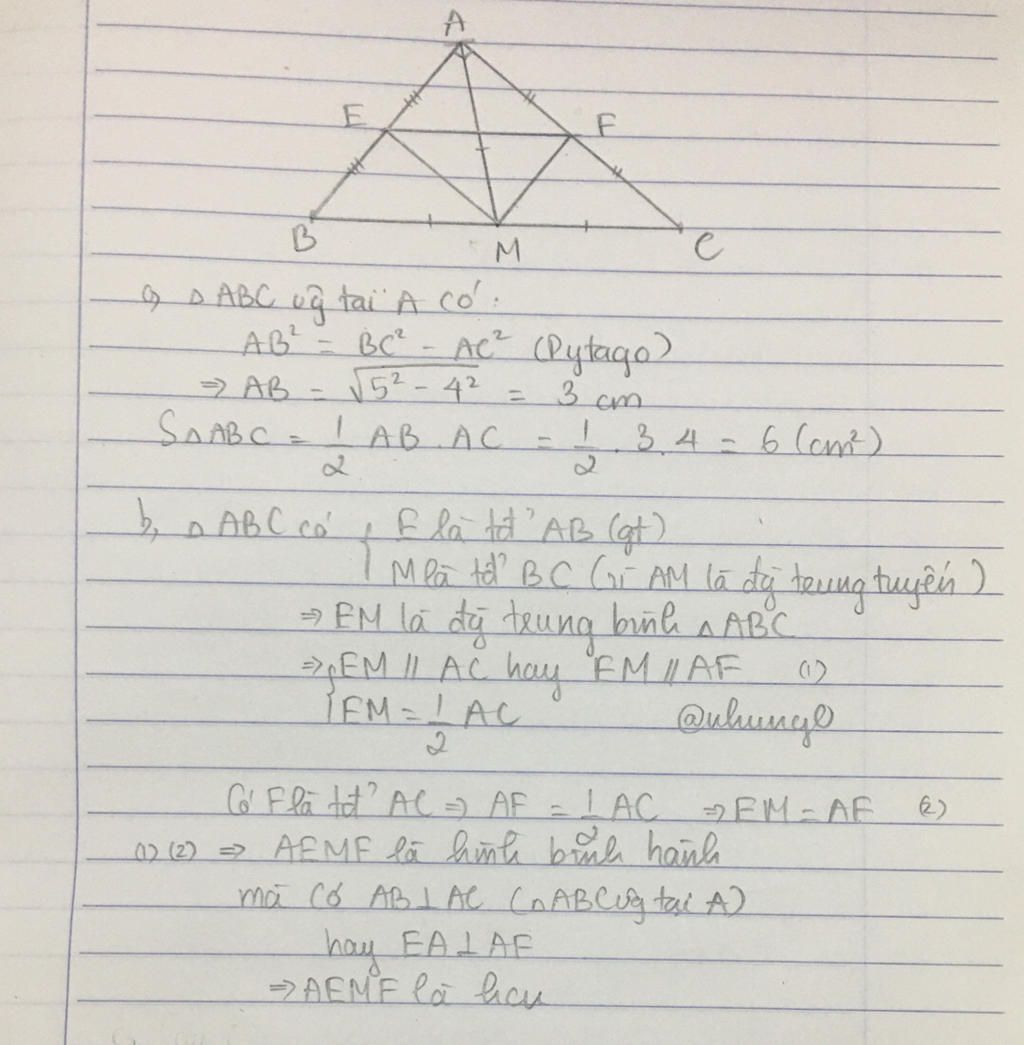 A
E
F
B
M
C
a, △ABC vg tại A có:
AB² = BC² - AC² (Pytago)
⇒ AB = √5² - 4² = 3 cm
S△ABC = 1/2 AB . AC = 1/2 . 3 . 4 = 6 (cm²)
b, △ABC có { E là tđ' AB (gt)
M là tđ' BC (vì AM là đg trung tuyến)
⇒ EM là đg trung bình △ABC
⇒ { EM // AC hay EM // AF (1)
EM = 1/2 AC
Có F là tđ' AC ⇒ AF = 1/2 AC ⇒ EM = AF (2)
(1) (2) ⇒ AEMF là hình bình hành
mà có AB ⊥ AC (△ABC vg tại A)
hay EA ⊥ AF
⇒ AEMF là hcn